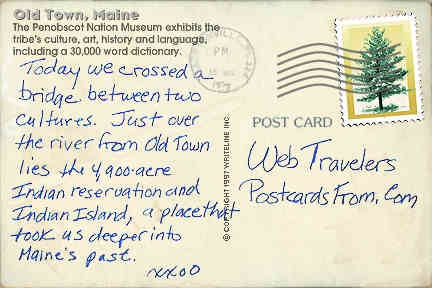 Old Town, Maine
The Penobscot Nation Museum exhibits the
tribe's culture, art, history and language,
including a 30,000 word dictionary.
Today we crossed a
bridge between two
cultures. Just over
the river from Old Town
lies the 4,900-acre
Indian reservation and
Indian Island, a place that
took us deeper into
Maine's past.
xxoo
© COPYRIGHT 1997 WRITELINE INC.
PM
POST CARD
Web Travelers
PostcardsFrom.Com